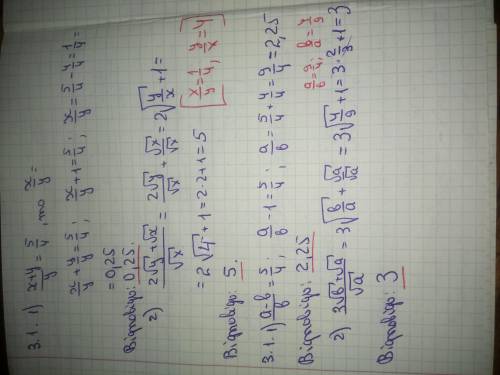 3.1. 1) x+y/y = 5/4, то x/y =
x/y + y/y = 5/4; x/y + 1 = 5/4; x/y = 5/4 - 4/4 = 1/4 =
= 0,25
Відповідь: 0,25.
2) 2√y+√x/√x = 2√y/√x + √x/√x = 2√y/x + 1 =
[x/y = 1/4, y/x = 4]
= 2√4 + 1 = 2·2+1 = 5
Відповідь: 5.
3.1. 1) a-b/b = 5/4; a/b - 1 = 5/4; a/b = 5/4 + 4/4 = 9/4 = 2,25
Відповідь: 2,25
a/b = 9/4; b/a = 4/9
2) 3√b+√a/√a = 3√b/a + √a/√a = 3√4/9 + 1 = 3·2/3 + 1 = 3
Відповідь: 3